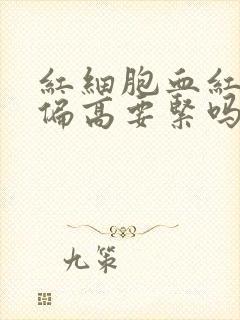 紅細胞血紅
偏高要緊嗎
九策